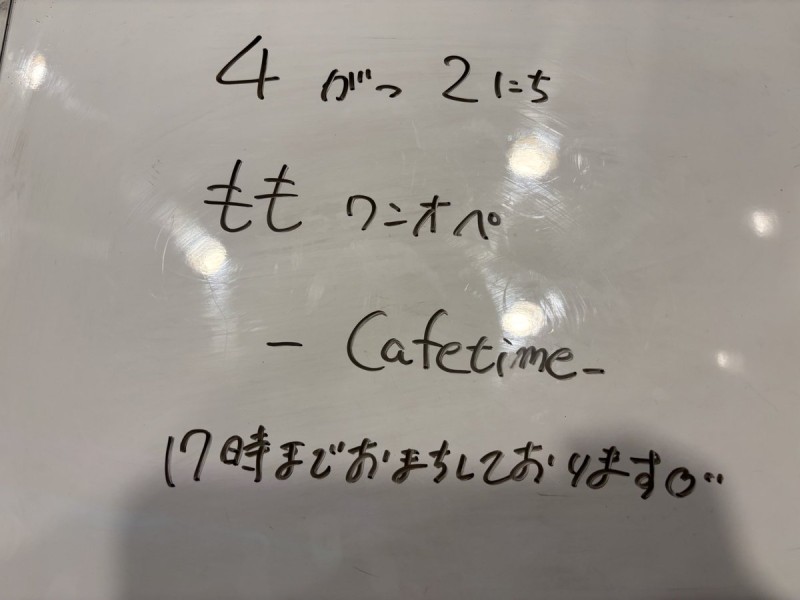 4 がつ 2 にち
もも ワンオペ
- Cafetime -
17時までおまちしております。